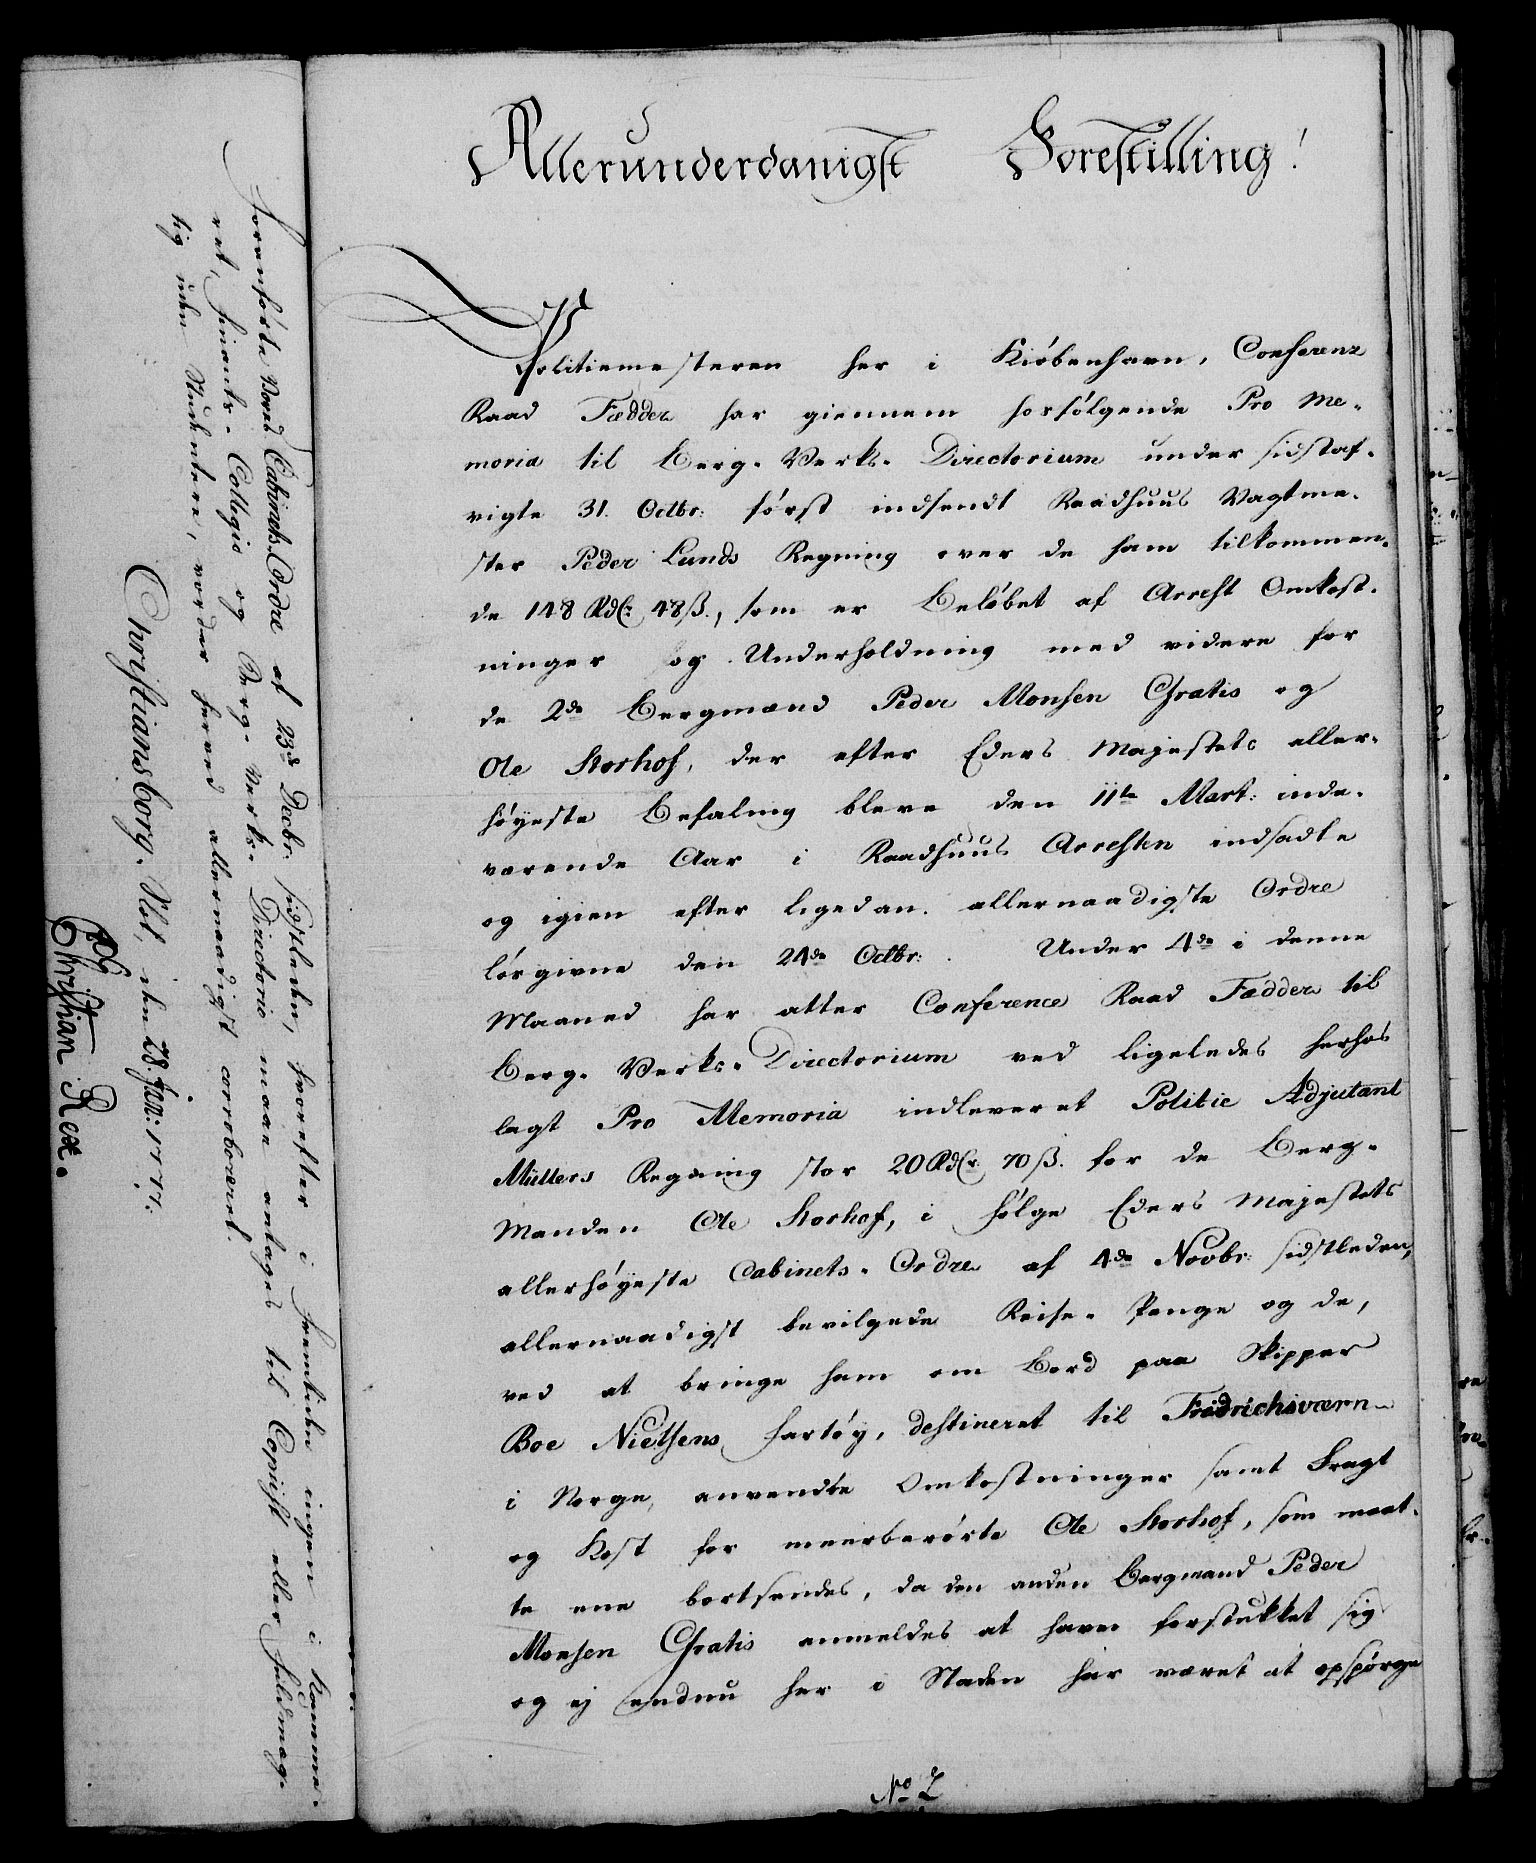 Allerunderdanigst Forestilling!
Politiemesteren her i Kiöbenhavn, Conferenz
Raad Fædder har giennem hosfölgende Pro Me-
moria til Berg-Verks-Directorium under sidstaf-
vigte 31. Octbr: först indsendt Raadhuus Vagtme-
ster Peder Lunds Regning over de ham tilkommen-
de 148 Rdlr. 48 ß., som er Belöbet af Arrest Omkost-
ninger og Underholdning med videre for
de 2de Bergmænd Peder Monsen Gratis og
Ole Storhof, der efter Eders Majestets aller-
höyeste Befaling bleve den 11te Mart: inde-
værende Aar i Raadhuus Arresten indsadte
og igien efter ligedan allernaadigste Ordre
lösgivne den 24de Octbr: . Under 4de i denne
Maaned har atter Conference Raad Fædder til
Berg-Verks-Directorium ved ligeledes herhos
lagt Pro Memoria indleveret Politie Adjutant
Müllers Regning stor 20 Rdlr. 70 ß. for de Berg-
Manden Ole Storhof, i fölge Eders Majestets
allerhöyeste Cabinets-Ordre af 4de Novbr: sidstleden,
allernaadigst bevilgede Reise-Penge og de,
ved at bringe ham om Bord paa Skipper
Boe Nielsens Fartöy, destineret til Fridrichsværn
i Norge, anvendte Omkostninger samt Fragt
og Kost for meerberörte Ole Storhof, som maat-
te ene bortsendes, da den anden Bergmand Peder
Monsen Gratis anmeldes at have forstukket sig
og ej endnu her i Staden har været at opspörge
No 2
Foranförte Vores Cabinets Ordre af 23d Decbr: sidstleden, hvorefter i Fremtiden ingen i Kamme-
ret, Finants-Collegio og Berg-Verks-Directorio maae antages til Copiist eller Fuldmæg-
tig uden Studentere, vorder herved allernaadigst corroboreret.
Christiansborg Slot, den 28. Jan: 1777.
Christian Rex.